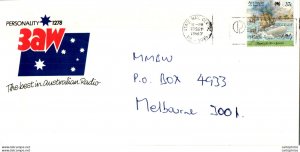 PERSONALITY 1278
3AW
The best in Australian Radio
MMBW
P.O. BOX 4933
Melbourne 3001.